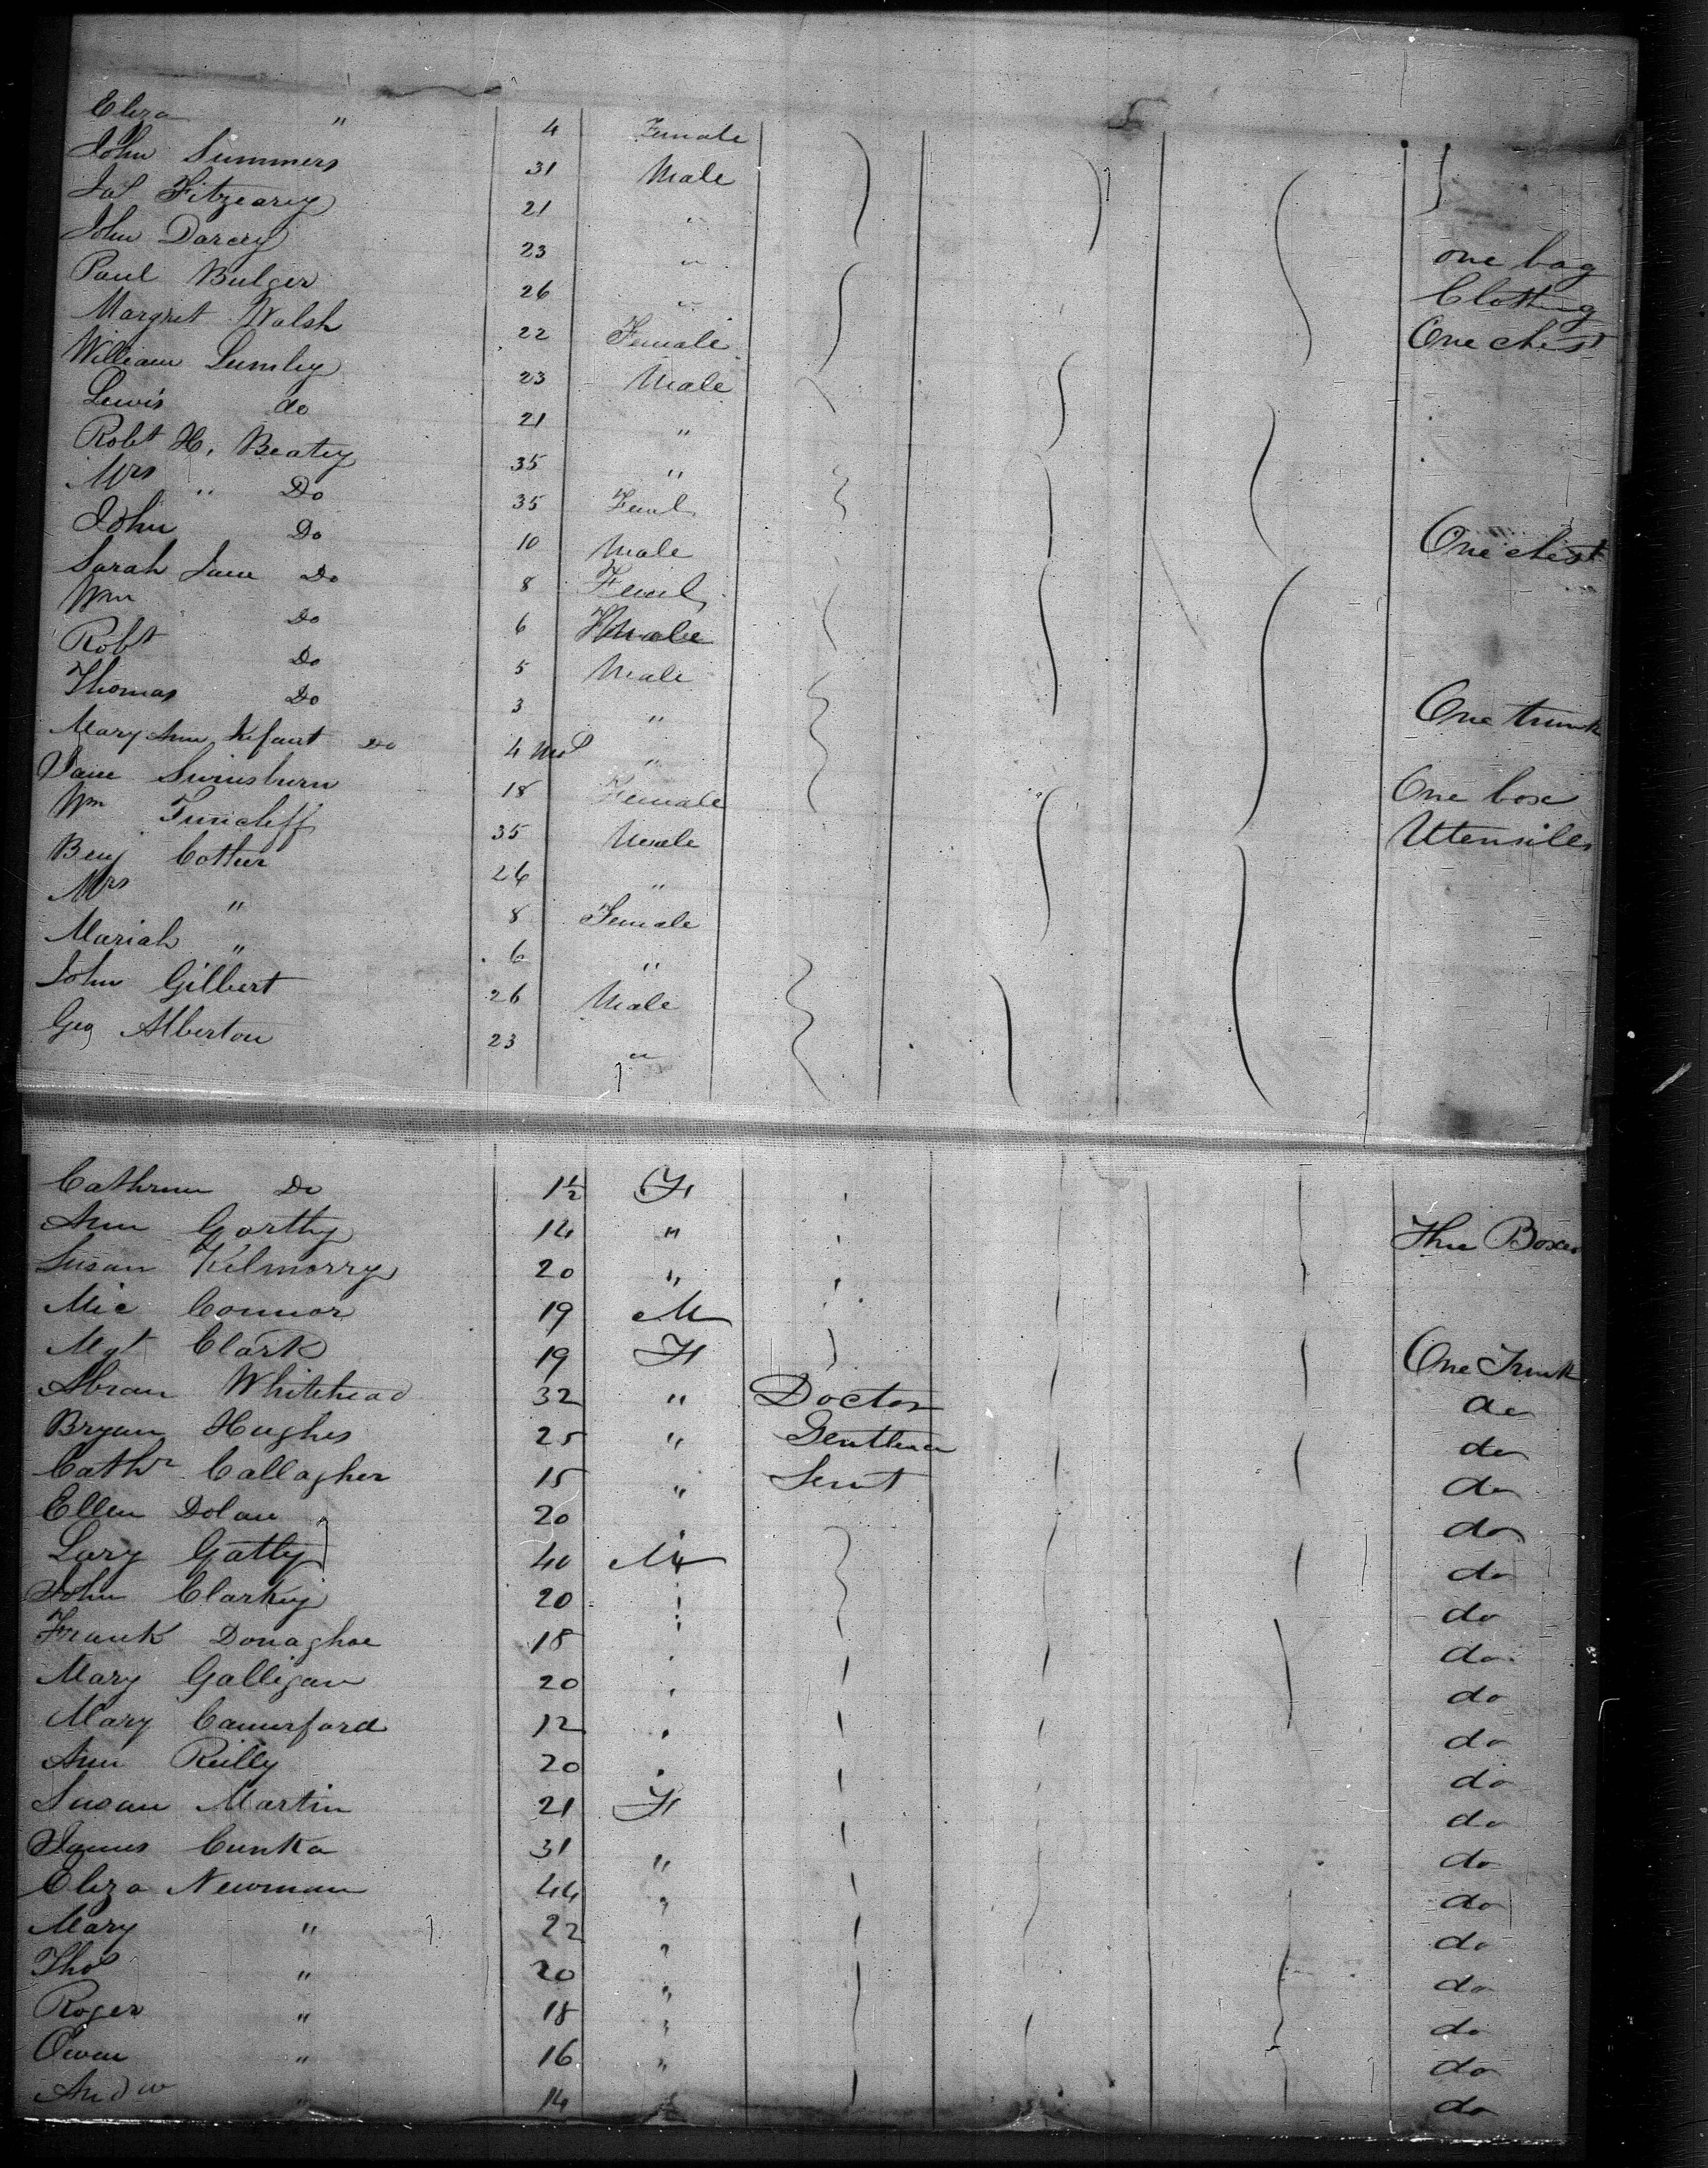 Eliza " 4 Female
John Summers 31 Male
Jas Fitzearey 21 "
John Darcey 23 " one bag
Paul Bulger 26 " Clothing
Margret Walsh 22 Female One chest
William Lumley 23 Male
Lewis do 21 "
Robt H. Beatey 35 "
Mrs " Do 35 Feml
John Do 10 Male One chest
Sarah Jane Do 8 Feml
Wm Do 6 Male
Robt Do 5 Male
Thomas Do 3 " One trunk
Mary Ann Infant Do 4 Mos "
Jane Swinsburn 18 Female One box
Wm Tuncliff 35 Male Utensiles
Benj Cotter 24 "
Mrs " 8 Female
Mariah " 6 "
John Gilbert 26 Male
Geo Alberton 23 "
Cathrine Do 1½ F
Ann Garthy 14 " Three Boxes
Susan Kilmorry 20 "
Mic Connor 19 M
Mgt Clark 19 F One Trunk
Abram Whitehead 32 " Doctor do
Bryan Hughes 25 " Gentleman do
Cathr Callagher 15 " Servt do
Ellen Dolan 20 do
Lary Gatty 40 M do
John Clarkey 20 do
Frank Donaghoe 18 do
Mary Galligan 20 do
Mary Camerford 12 do
Ann Reilly 20 do
Susan Martin 21 F do
James Cunka 31 " do
Eliza Newman 44 " do
Mary " 22 " do
Thos " 20 " do
Roger " 18 " do
Owen " 16 " do
Andw " 14 do